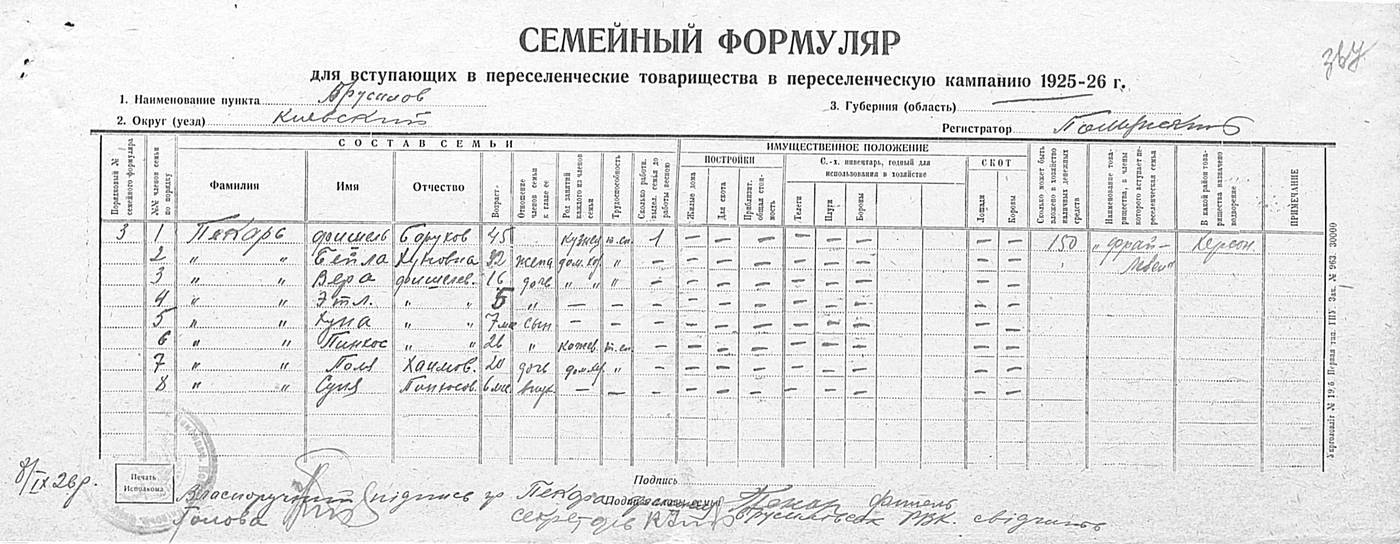 СЕМЕЙНЫЙ ФОРМУЛЯР
367
для вступающих в переселенческие товарищества в переселенческую кампанию 1925-26 г.
1. Наименование пункта Брусилов
3. Губерния (область)
2. Округ (уезд) Киевский
Регистратор
СОСТАВ СЕМЬИ
ИМУЩЕСТВЕННОЕ ПОЛОЖЕНИЕ
Порядковый № семейного формуляра
№№ членов семьи по порядку
Фамилия
Имя
Отчество
Возраст
Отношение членов семьи к главе ее
Род занятий каждого из членов семьи
Трудоспособность
Сколько работн. выдел. семья до работы весною
ПОСТРОЙКИ
Жилые дома
Для скота
Приблизит. общая стоимость
С.-х. инвентарь, годный для использования в хозяйстве
Телеги
Плуги
Бороны
СКОТ
Лошади
Коровы
Сколько может быть вложено в хозяйство наличных денежных средств
Наименование товарищества, в члены которого вступает переселенческая семья
В какой район товарищества назначено водворение
ПРИМЕЧАНИЕ
3 1 Пекарь Фишель Борухов 45 кузнец т.сп. 1 — — — — — — — — 150 „Фрай- Херсон.
2 „ „ Бейла Хуновна 32 жена дом.хоз „ — — — — — — — — — лебен"
3 „ „ Вера Фишелев. 16 дочь „ „ „ — — — — — — — — —
4 „ „ Этл. „ „ 5 „ — — — — — — — — — — —
5 „ „ Хуна „ „ 7 мс сын — — — — — — — — — — —
6 „ „ Пинхос „ „ 26 „ кожев. т.сп. — — — — — — — — —
7 „ „ Поля Хаимов. 20 дочь дом.хоз „ — — — — — — — — —
8 „ „ Суня Пинхосов. 6 мс внук — — — — — — — — — — —
8/IX 26 р.
Печать Исполкома
Подпись
Подпись главы семьи
Власноручний підпис гр Пекаря Фишель
Голова
Секретарь Брусиловськ РВК. свідчить
Укрголовліт № 19,б. Первая тип. ГПУ. Зак. № 963. 30000